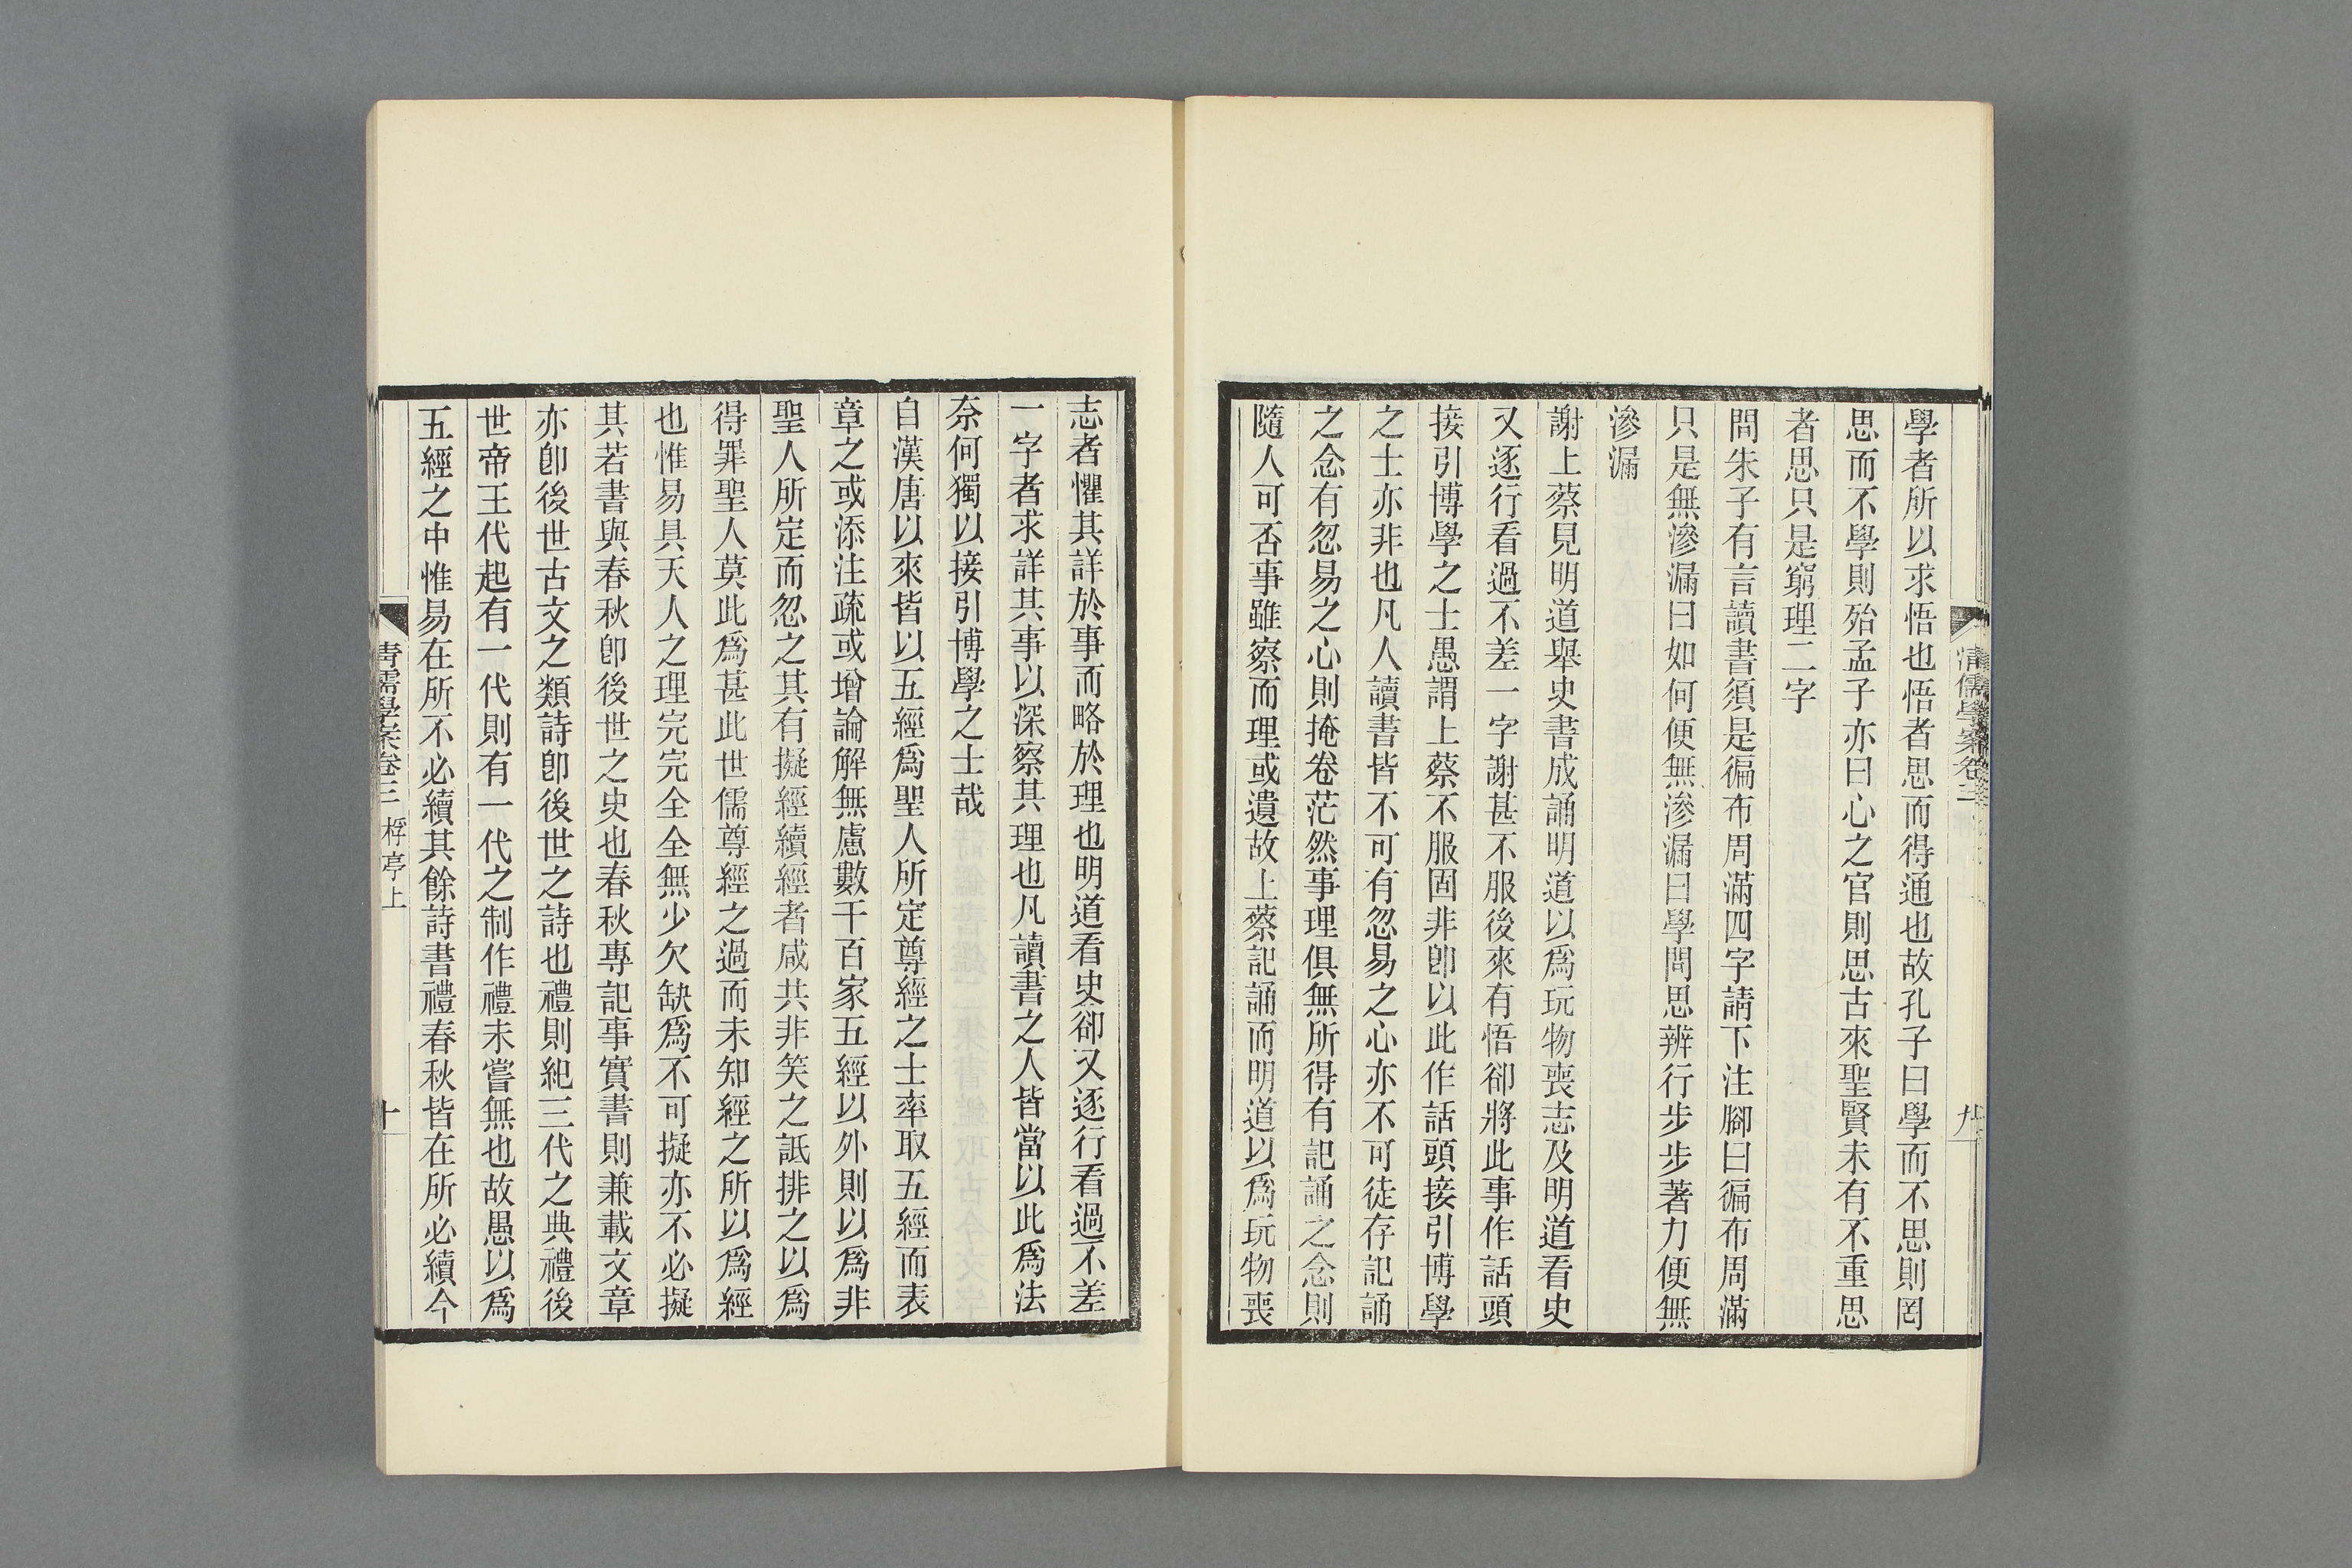 清儒學案卷三
九
學者所以求悟也悟者思而得通也故孔子曰學而不思則罔
思而不學則殆孟子亦曰心之官則思古來聖賢未有不重思
者思只是窮理二字
問朱子有言讀書須是徧布周滿四字請下注腳曰徧布周滿
只是無滲漏曰如何便無滲漏曰學問思辨行步步著力便無
滲漏
謝上蔡見明道舉史書成誦明道以爲玩物喪志及明道看史
又逐行看過不差一字謝甚不服後來有悟卻將此事作話頭
接引博學之士愚謂上蔡不服固非卽以此作話頭接引博學
之士亦非也凡人讀書皆不可有忽易之心亦不可徒存記誦
之念有忽易之心則掩卷茫然事理俱無所得有記誦之念則
隨人可否事雖察而理或遺故上蔡記誦而明道以爲玩物喪
志者懼其詳於事而略於理也明道看史卻又逐行看過不差
一字者求詳其事以深察其理也凡讀書之人皆當以此爲法
奈何獨以接引博學之士哉
自漢唐以來皆以五經爲聖人所定尊經之士率取五經而表
章之或添注疏或增論解無慮數千百家五經以外則以爲非
聖人所定而忽之其有擬經續經者咸共非笑之詆排之以爲
得罪聖人莫此爲甚此世儒尊經之過而未知經之所以爲經
也惟易具天人之理完完全全無少欠缺爲不可擬亦不必擬
其若書與春秋卽後世之史也春秋專記事實書則兼載文章
亦卽後世古文之類詩卽後世之詩也禮則紀三代之典禮後
世帝王代起有一代則有一代之制作禮未嘗無也故愚以爲
五經之中惟易在所不必續其餘詩書禮春秋皆在所必續今
清儒學案卷三 桴亭上
十